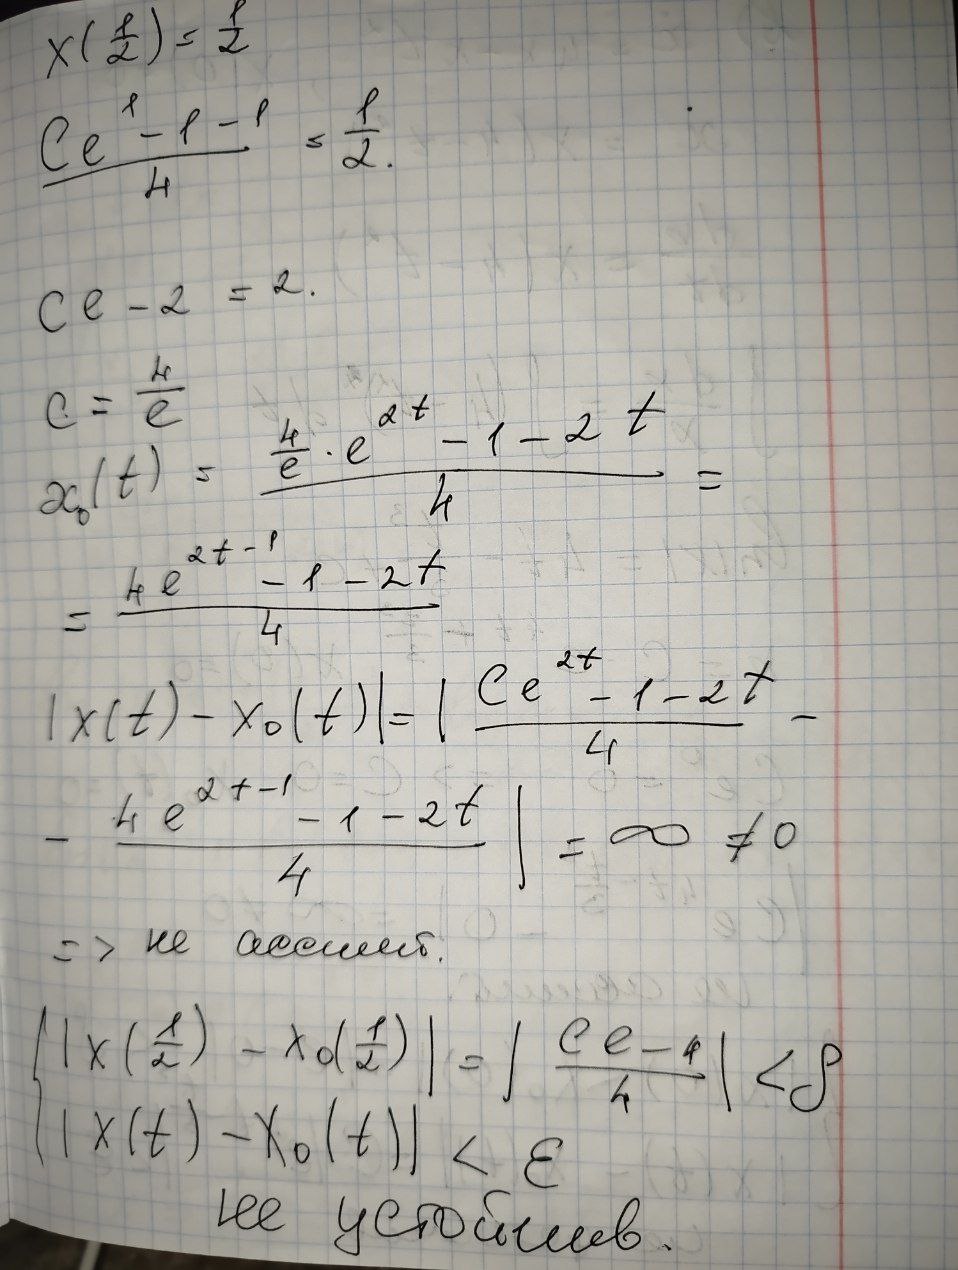 x(1/2) = 1/2
(Ce^1 - 1 - 1)/4 = 1/2.
Ce - 2 = 2.
C = 4/e
x₀(t) = (4/e · e^(2t) - 1 - 2t)/4 =
= (4e^(2t-1) - 1 - 2t)/4
|x(t) - x₀(t)| = |(Ce^(2t) - 1 - 2t)/4 -
- (4e^(2t-1) - 1 - 2t)/4| = ∞ ≠ 0
=> не ассимт.
{|x(1/2) - x₀(1/2)| = |(Ce - 4)/4| < δ
|x(t) - x₀(t)| < ε
не устойчив.